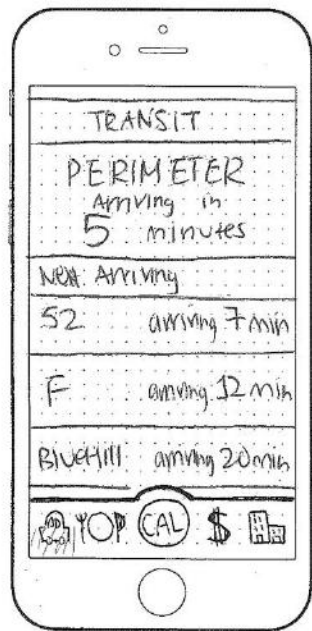 TRANSIT
PERIMETER
Arriving in
5 minutes
Next Arriving
52 arriving 7 min
F arriving 12 min
BlueHill arriving 20 min
CAL $